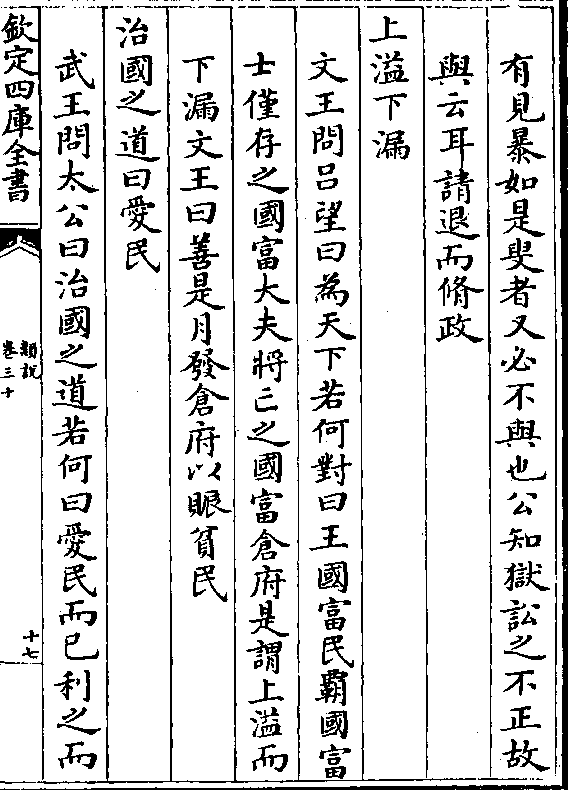 有見暴如是叟者又必不與也公知獄訟之不正故
與云耳請退而脩政
上溢下漏
文王問呂望曰為天下若何對曰王國富民霸國富
士僅存之國富大夫將亡之國富倉府是謂上溢而
下漏文王曰善是月發倉府以賑貧民
治國之道曰愛民
武王問太公曰治國之道若何曰愛民而已利之而
欽定四庫全書
類說
卷三十
十七